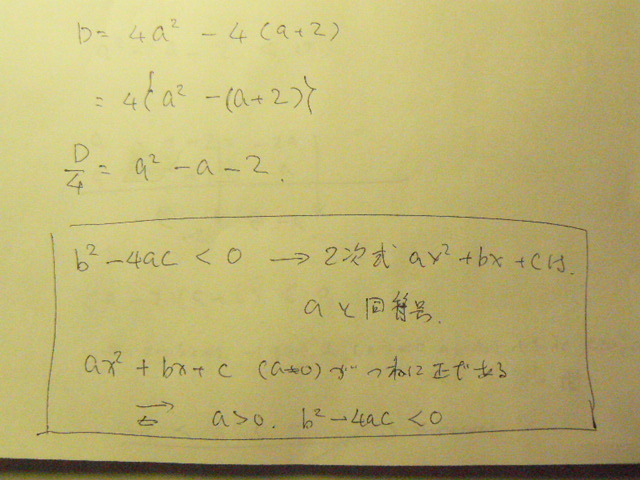 D = 4a² - 4(a+2)
= 4{a² - (a+2)}
D/4 = a² - a - 2.
b² - 4ac < 0 → 2次式 ax² + bx + cは.
aと同符号.
ax² + bx + c (a≠0)がつねに正である
⇄ a>0. b² - 4ac < 0